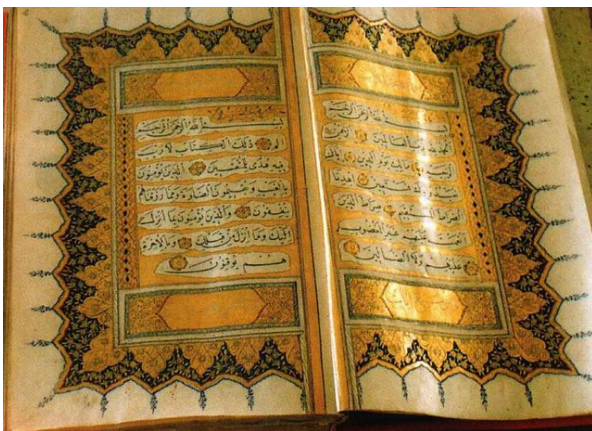 بسم الله الرحمن الرحيم
الحمد لله رب العالمين الرحمن
الرحيم مالك يوم الدين اياك
نعبد واياك نستعين اهدنا
الصراط المستقيم صراط الذين
انعمت عليهم غير المغضوب
عليهم ولا الضالين
بسم الله الرحمن الرحيم
الم ذلك الكتاب لا ريب
فيه هدى للمتقين الذين يؤمنون
بالغيب ويقيمون الصلوة ومما رزقناهم
ينفقون والذين يؤمنون بما انزل
اليك وما انزل من قبلك وبالاخرة
هم يوقنون